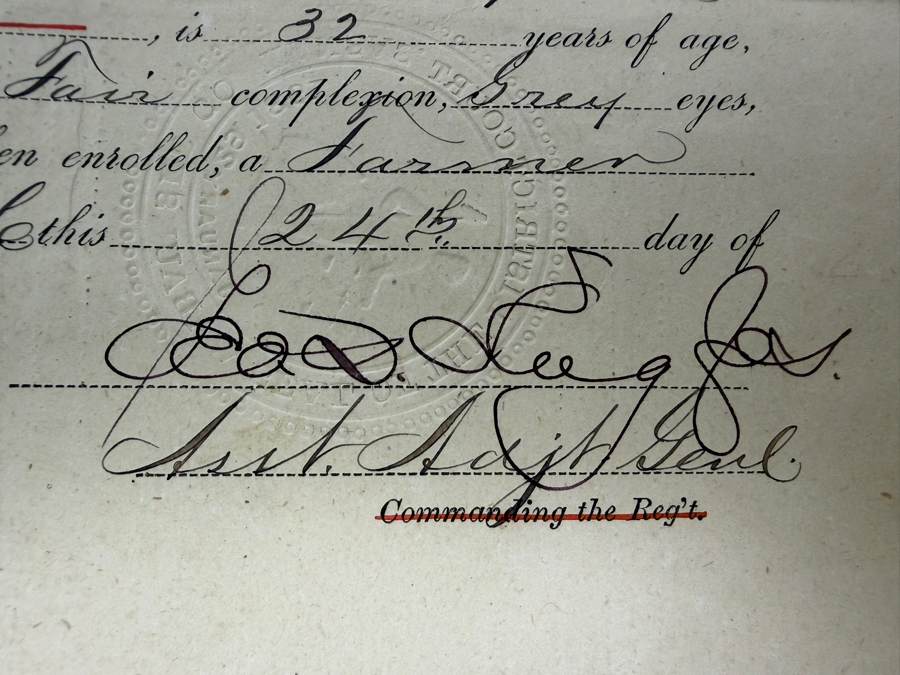 , is 32 years of age,
Fair complexion, Grey eyes,
en enrolled, a Farmer
this 24th day of
Asst. Adjt Genl.
Commanding the Reg't.